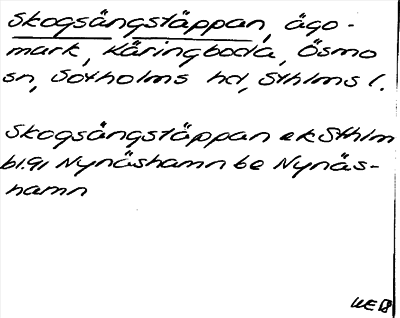 Skogsängstäppan, ägo-
mark, Käringboda, Ösmo
sn, Sotholms hd, Sthlms l.
Skogsängstäppan ek Sthlm
bl.91 Nynäshamn be Nynäs-
hamn